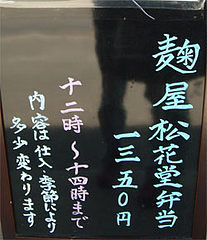 麹屋松花堂弁当
一三五〇円
十二時〜十四時まで
内容は仕入・季節により
多少変わります